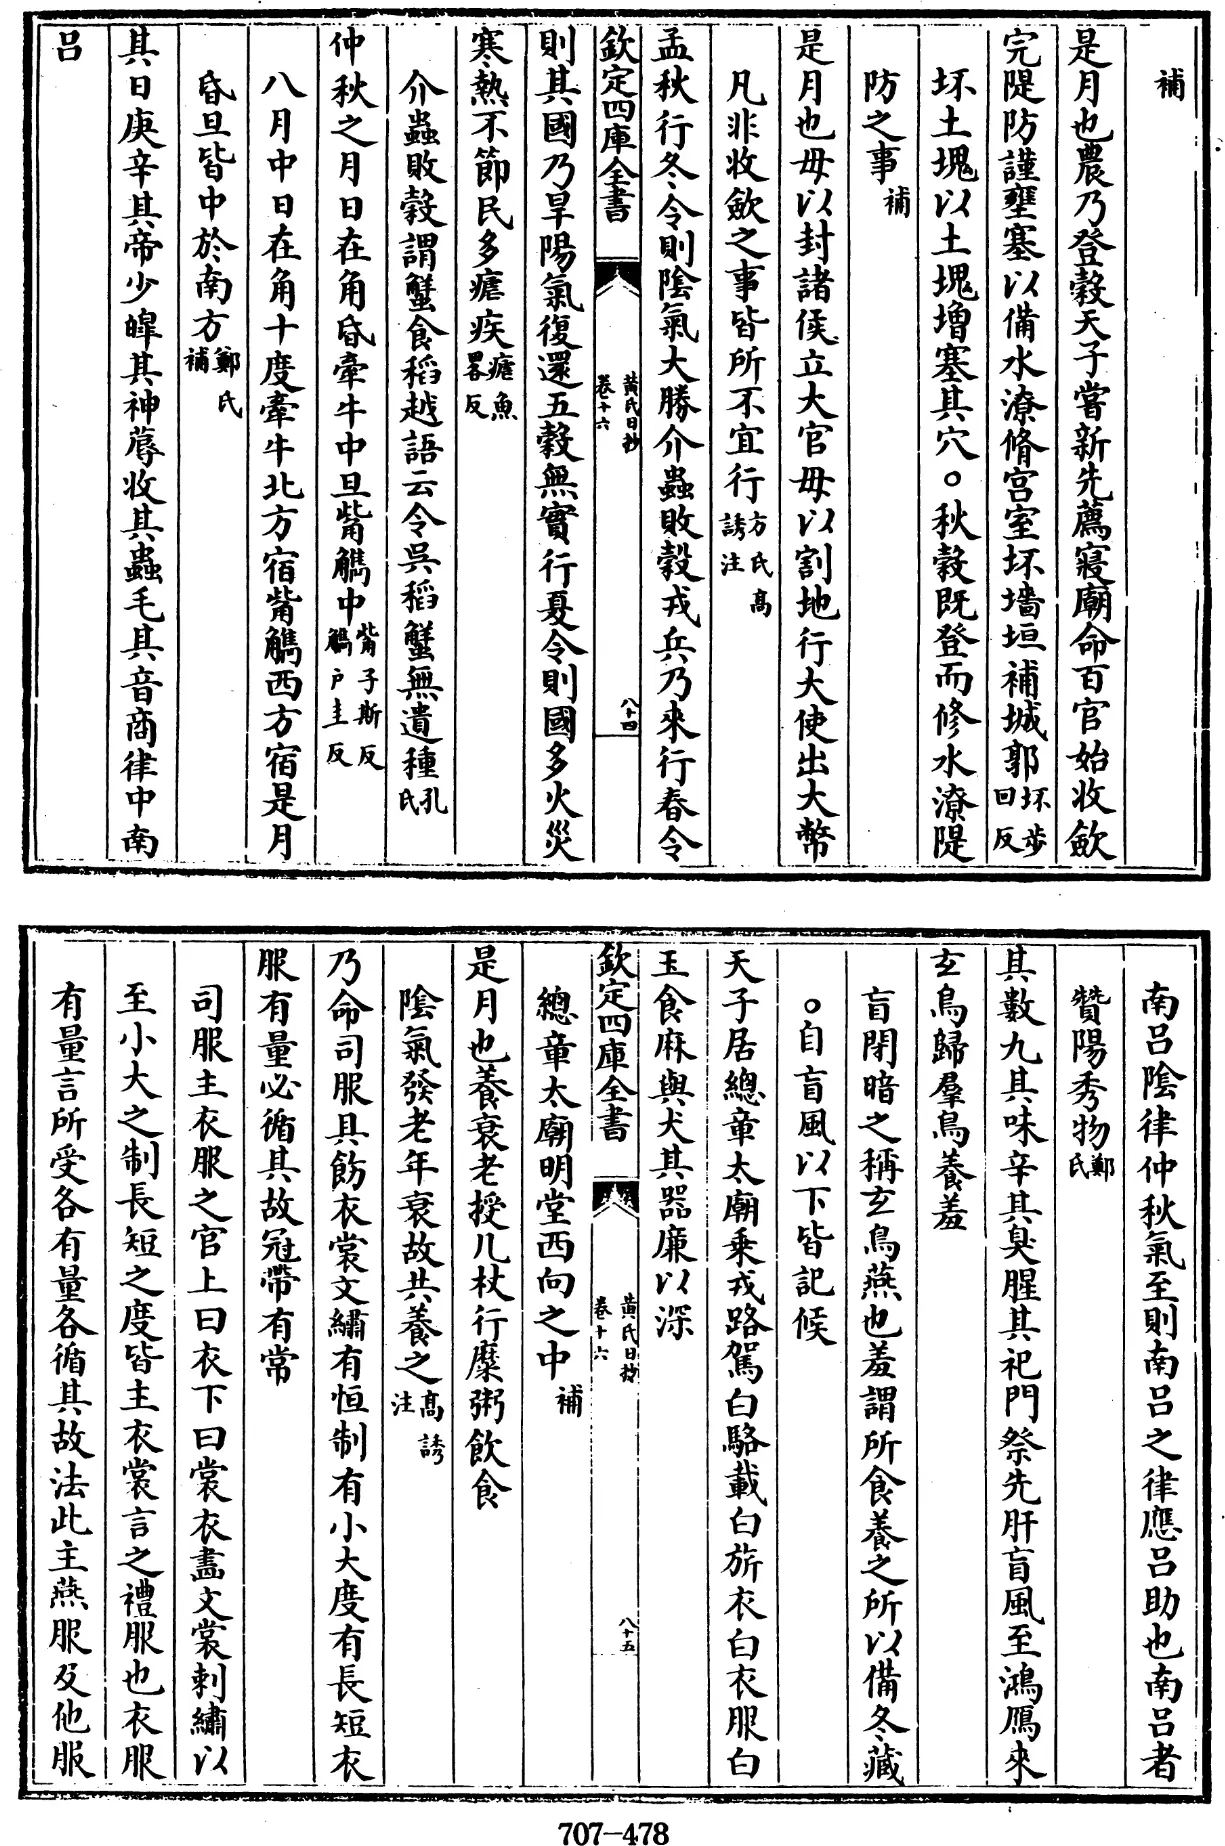 補
是月也農乃登穀天子嘗新先薦寢廟命百官始收斂
完隄防謹壅塞以備水潦脩宫室坏墻垣補城郭坏步回反
坏土塊以土塊增塞其穴○秋穀既登而修水潦隄
防之事補
是月也毋以封諸侯立大官毋以割地行大使出大幣
凡非收斂之事皆所不宜行方氏高誘注
孟秋行冬令則陰氣大勝介蟲敗穀戎兵乃來行春令
欽定四庫全書
黄氏日抄
卷十六
八十四
則其國乃旱陽氣復還五穀無實行夏令則國多火災
寒熱不節民多瘧疾瘧魚畧反
介蟲敗穀謂蟹食稻越語云令吳稻蟹無遺種孔氏
仲秋之月日在角昏牽牛中旦觜觿中觜子斯反觿户圭反
八月中日在角十度牽牛北方宿觜觿西方宿是月
昏旦皆中於南方鄭氏補
其日庚辛其帝少皞其神蓐收其蟲毛其音商律中南
吕
南吕陰律仲秋氣至則南吕之律應吕助也南吕者
贊陽秀物鄭氏
其數九其味辛其臭腥其祀門祭先肝盲風至鴻鴈來
玄鳥歸羣鳥養羞
盲閉暗之稱玄鳥燕也羞謂所食養之所以備冬藏
○自盲風以下皆記候
天子居總章太廟乘戎路駕白駱載白旂衣白衣服白
玉食麻與犬其器廉以深
欽定四庫全書
黄氏日抄
卷十六
八十五
總章太廟明堂西向之中補
是月也養衰老授几杖行糜粥飲食
陰氣發老年衰故共養之高誘注
乃命司服具飭衣裳文繡有恒制有小大度有長短衣
服有量必循其故冠帶有常
司服主衣服之官上曰衣下曰裳衣畫文裳刺繡以
至小大之制長短之度皆主衣裳言之禮服也衣服
有量言所受各有量各循其故法此主燕服及他服
707-478